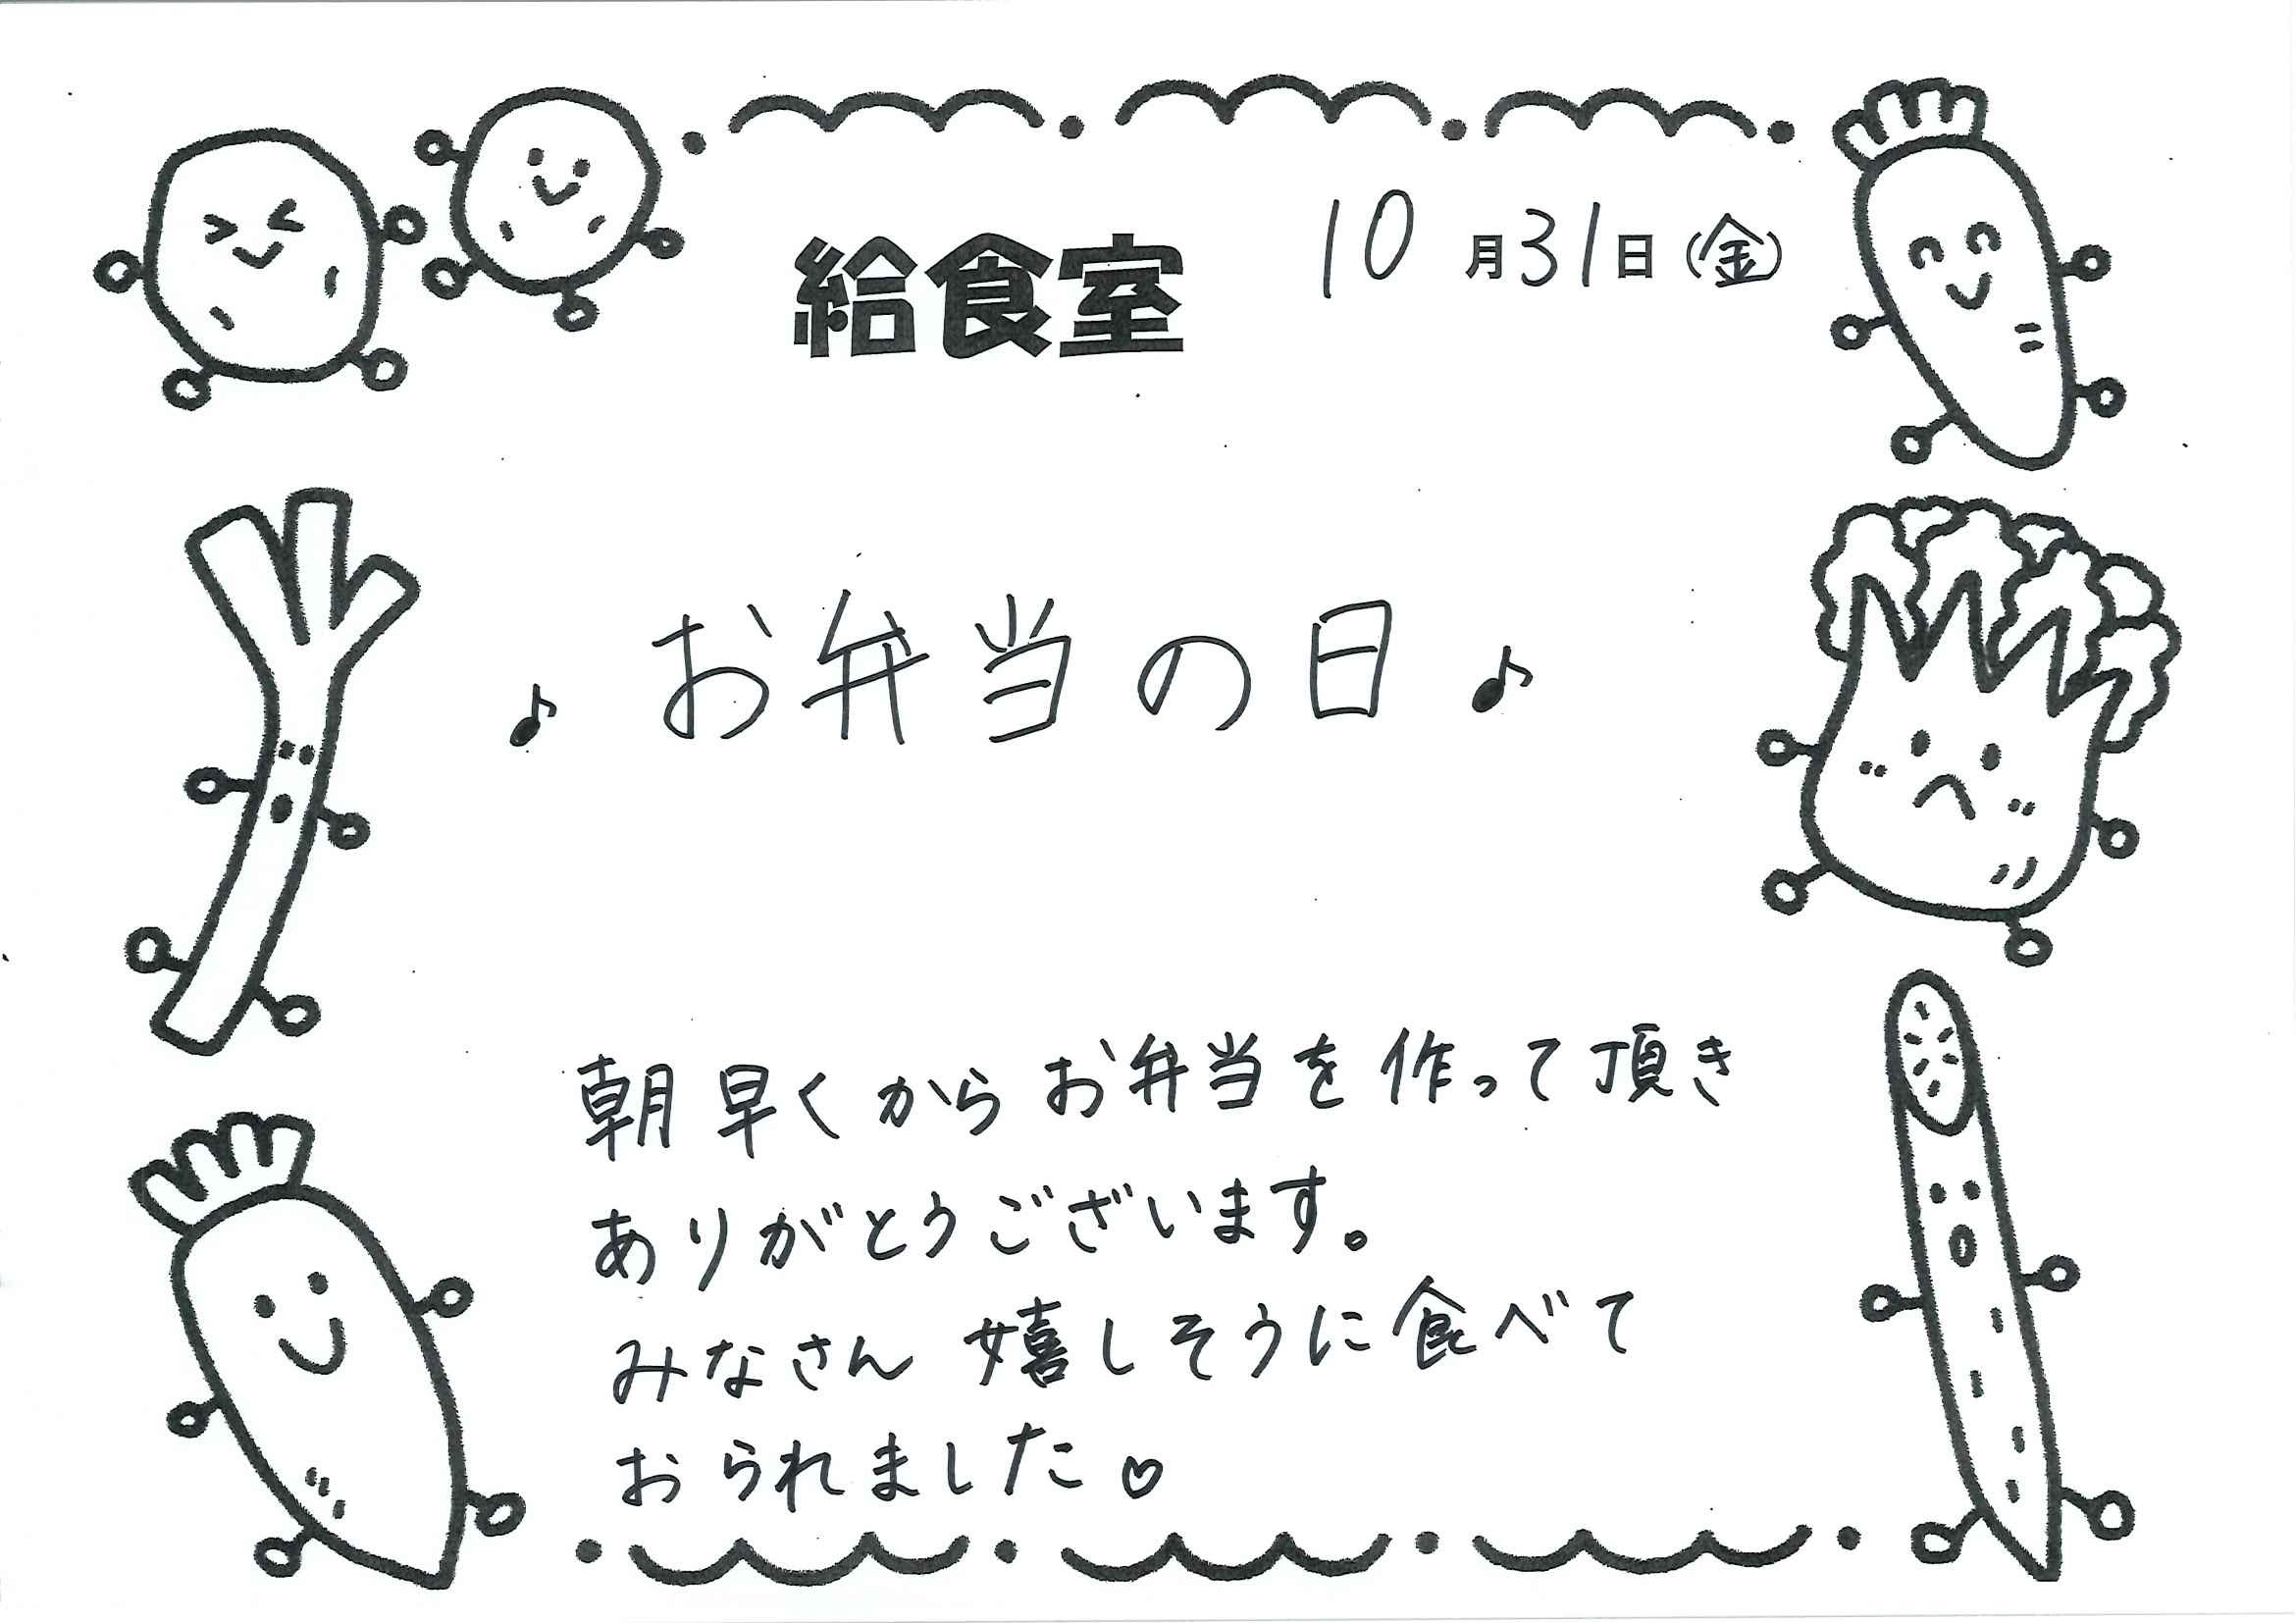 給食室 10月31日(金)
♪お弁当の日♪
朝早くからお弁当を作って頂き
ありがとうございます。
みなさん嬉しそうに食べて
おられました♡